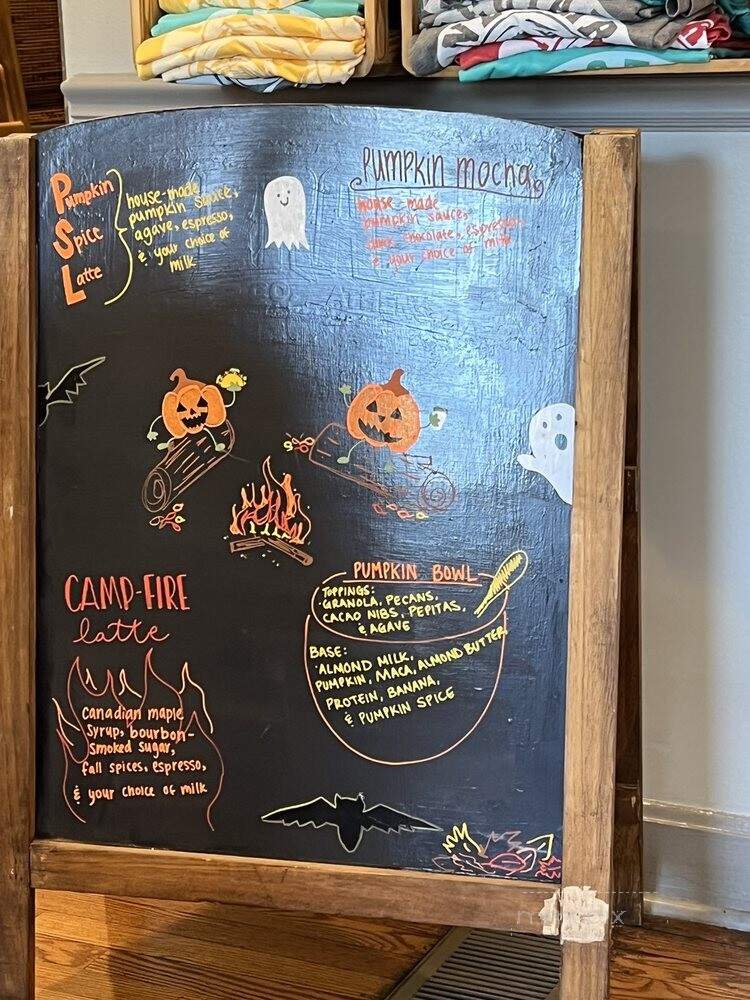 Pumpkin
Spice
Latte
house-made
pumpkin sauce,
agave, espresso,
& your choice of
milk
PUMPKIN mocha
house-made
pumpkin sauce,
dark chocolate, espresso
& your choice of milk
CAMP-FIRE
latte
Canadian maple
syrup, bourbon-
smoked sugar,
fall spices, espresso,
& your choice of milk
PUMPKIN BOWL
TOPPINGS:
GRANOLA, PECANS,
CACAO NIBS, PEPITAS,
& AGAVE
BASE:
ALMOND MILK,
PUMPKIN, MACA, ALMOND BUTTER,
PROTEIN, BANANA,
& PUMPKIN SPICE